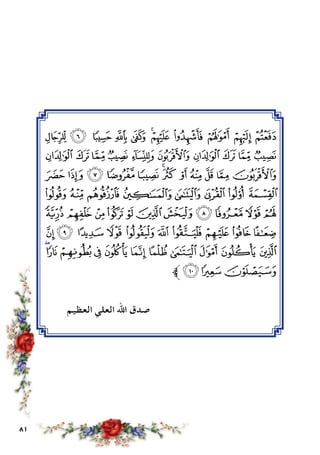 دَفَعْتُمْ إِلَيْهِمْ أَمْوَالَهُمْ فَأَشْهِدُوا۟ عَلَيْهِمْ ۚ وَكَفَىٰ بِٱللَّهِ حَسِيبًا ۝٦ لِّلرِّجَالِ
نَصِيبٌ مِّمَّا تَرَكَ ٱلْوَٰلِدَانِ وَٱلْأَقْرَبُونَ وَلِلنِّسَآءِ نَصِيبٌ مِّمَّا تَرَكَ ٱلْوَٰلِدَانِ
وَٱلْأَقْرَبُونَ مِمَّا قَلَّ مِنْهُ أَوْ كَثُرَ ۚ نَصِيبًا مَّفْرُوضًا ۝٧ وَإِذَا حَضَرَ
ٱلْقِسْمَةَ أُو۟لُوا۟ ٱلْقُرْبَىٰ وَٱلْيَتَٰمَىٰ وَٱلْمَسَٰكِينُ فَٱرْزُقُوهُم مِّنْهُ وَقُولُوا۟
لَهُمْ قَوْلًا مَّعْرُوفًا ۝٨ وَلْيَخْشَ ٱلَّذِينَ لَوْ تَرَكُوا۟ مِنْ خَلْفِهِمْ ذُرِّيَّةً
ضِعَٰفًا خَافُوا۟ عَلَيْهِمْ فَلْيَتَّقُوا۟ ٱللَّهَ وَلْيَقُولُوا۟ قَوْلًا سَدِيدًا ۝٩ إِنَّ
ٱلَّذِينَ يَأْكُلُونَ أَمْوَٰلَ ٱلْيَتَٰمَىٰ ظُلْمًا إِنَّمَا يَأْكُلُونَ فِى بُطُونِهِمْ نَارًا ۖ
وَسَيَصْلَوْنَ سَعِيرًا ۝١٠ ﴾
صدق الله العلي العظيم
٨١